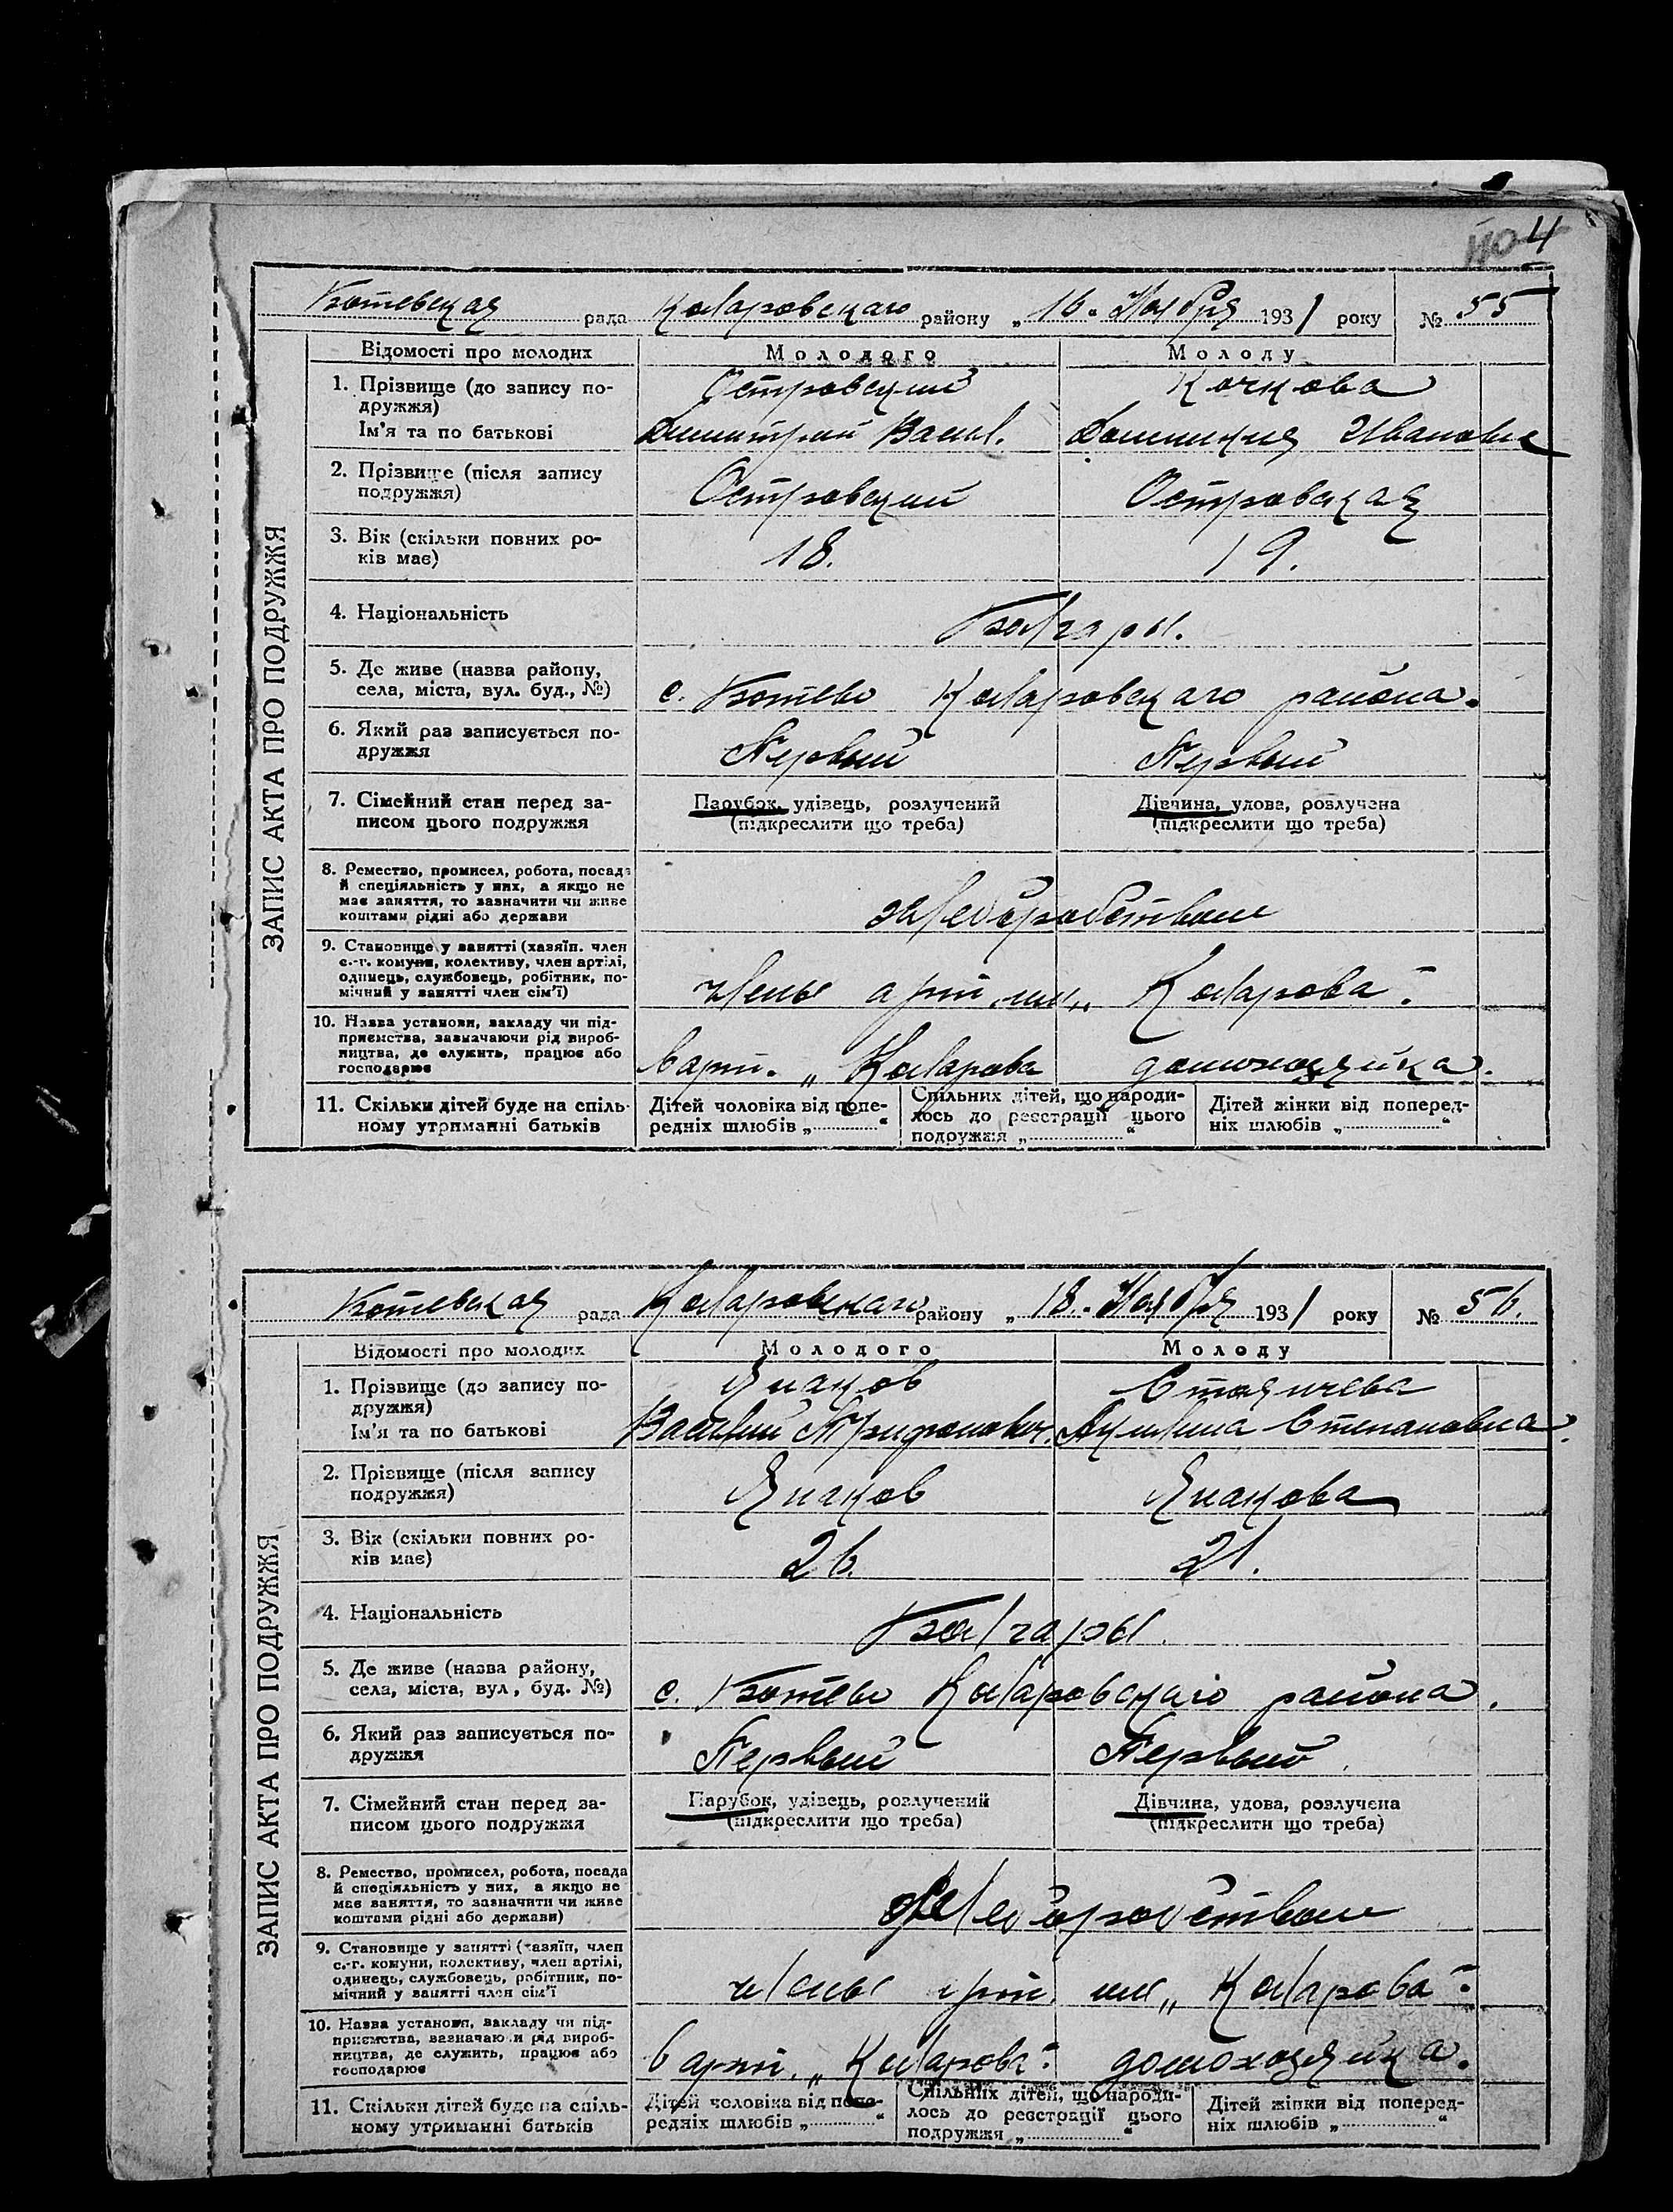 4
Ботевская рада Коларовскаго району „ 16 " Ноября 1931 року № 55
ЗАПИС АКТА ПРО ПОДРУЖЖЯ
Відомості про молодих Молодого Молоду
1. Прізвище (до запису по- Островский Кочкова
дружжя)
Ім'я та по батькові Димитрий Васил. Домникия Ивановна
2. Прізвище (після запису
подружжя) Островский Островская
3. Вік (скільки повних ро-
ків має) 18. 19.
4. Національність Болгары.
5. Де живе (назва району,
села, міста, вул. буд., №) с. Ботево Коларовскаго района.
6. Який раз записується по-
дружжя Первый Первый
7. Сімейний стан перед за- Парубок, удівець, розлучений Дівчина, удова, розлучена
писом цього подружжя (підкреслити що треба) (підкреслити що треба)
8. Ремество, промисел, робота, посада
й спеціяльність у них, а якщо не
має заняття, то зазначити чи живе
коштами рідні або держави хлеборобством
9. Становище у занятті (хазяїн. член
с.-г. комуни, колективу, член артілі,
одинець, службовець, робітник, по-
мічний у занятті член сім'ї) члены арт. им „ Коларова".
10. Назва установи, закладу чи під-
приємства, зазначаючи рід вироб-
ництва, де служить, працює або
господарює в арт. „ Коларова домохозяйка.
11. Скільки дітей буде на спіль- Дітей чоловіка від попе- Спільних дітей, що народи- Дітей жінки від поперед-
ному утриманні батьків редніх шлюбів „ " лось до реєстрації цього ніх шлюбів „ "
подружжя „ "
Ботевская рада Коларовскаго району „ 18 " Ноября 1931 року № 56.
ЗАПИС АКТА ПРО ПОДРУЖЖЯ
Відомості про молодих Молодого Молоду
1. Прізвище (до запису по- Янаков Стоячева
дружжя)
Ім'я та по батькові Василий Трифонович. Акулина Степановна.
2. Прізвище (після запису
подружжя) Янаков Янакова
3. Вік (скільки повних ро-
ків має) 26. 21.
4. Національність Болгары.
5. Де живе (назва району,
села, міста, вул, буд. №) с. Ботево Коларовскаго района.
6. Який раз записується по-
дружжя Первый Первый.
7. Сімейний стан перед за- Парубок, удівець, розлучений Дівчина, удова, розлучена
писом цього подружжя (підкреслити що треба) (підкреслити що треба)
8. Ремество, промисел, робота, посада
й спеціяльність у них, а якщо не
має заняття, то зазначити чи живе
коштами рідні або держави) хлеборобством
9. Становище у занятті (хазяїн, член
с.-г. комуни, колективу, член артілі,
одинець, службовець, робітник, по-
мічний у занятті член сім'ї члены арт. им „ Коларова".
10. Назва установи, закладу чи під-
приємства, зазначаючи рід вироб-
ництва, де служить, працює або
господарює в арт. „ Коларова". домохозяйка.
11. Скільки дітей буде на спіль- Дітей чоловіка від попе- Спільних дітей, що народи- Дітей жінки від поперед-
ному утриманні батьків редніх шлюбів „ " лось до реєстрації цього ніх шлюбів „ "
подружжя „ "